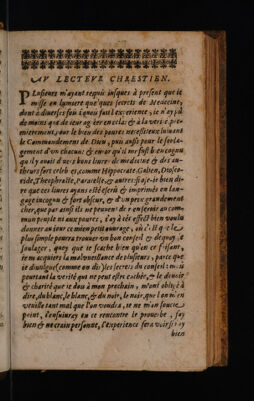 AV LECTEVR CHRESTIEN.
PLusieurs m'ayant requis iusques à present que ie
misse en lumiere quelques secrets de Medecine,
dont à diuerses fois i'ay eu faict l'experience, ie n'ay
à moins que de leur agréer en cela: & à la verité pre-
mierement, pour le bien des poures necessiteux suiuant
le Commandement de Dieu, puis aussi pour le soula-
gement d'vn chacun: & encor qu'il ne fust incogneu
qu'il y auoit diuers bons liures de medecine & des au-
theurs fort celebres, comme Hippocrate Galien, Diosco-
ride, Theophraste, Paracelse, & autres: si ay-ie bien di-
re que ces liures ayans esté escris & imprimés en lan-
gage incogneu & fort obscur, & d'vn pris grandement
cher, que par ainsi ils ne peuuent de r'en seruir au com-
mun peuple ni aux poures, i'ay à cest effect bien voulu
donner au iour ce mien petit ouurage, où c'est que le
plus simple pourra trouuer vn bon conseil & dequoy se
soulager, quoy que ie sçache bien qu'en ce faisant,
ie m'acquiers la malveuillance de plusieurs, parce que
ie diuulgue, comme on dit, les secrets du conseil:
pourtant la verité qui ne peut estre cachée, & le deuoir
& charité que ie dou à mon prochain, m'ont obligé à
dire, du blanc, le blanc, & du noir, le noir, que l'on m'en
veuille tant mal que l'on voudra, ie ne m'en soucie
point, i'ensuiuray en ce rencontre le prouerbe, fay
bien & ne crain personne, l'experience fera voir si ay
bien